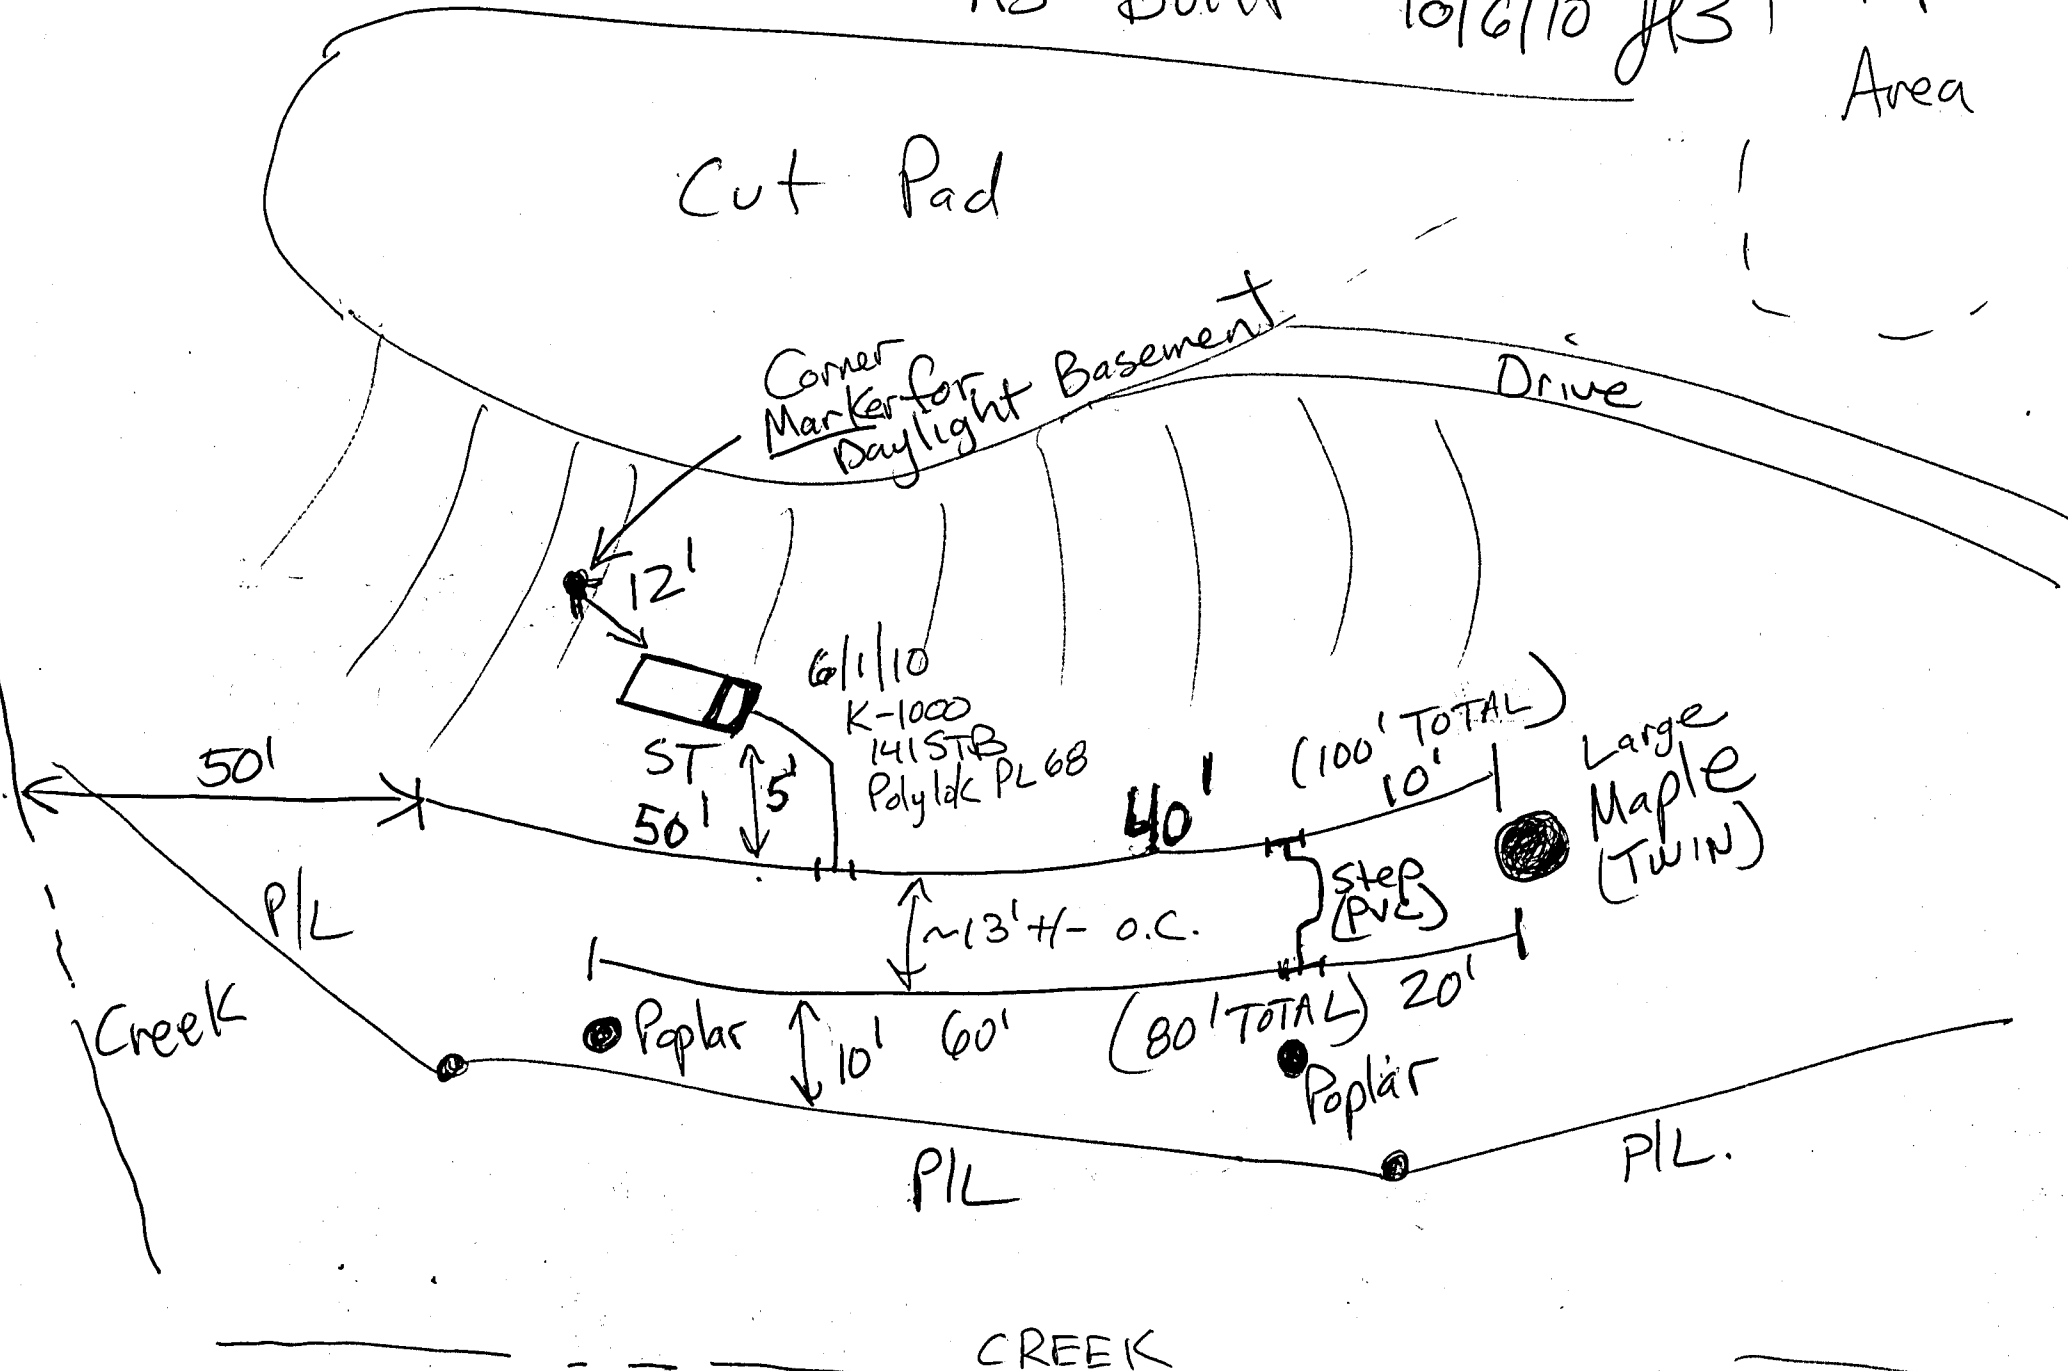 As Built 10/6/10
Area
Cut Pad
Corner
Marker for
Daylight Basement
Drive
12'
6/1/10
K-1000
141 STB
Polylok PL 68
ST
5'
50'
50'
40'
(100' TOTAL)
10'
Large
Maple
(TWIN)
Step
(PVC)
~13' +/- O.C.
P/L
Creek
Poplar
10'
60'
(80' TOTAL)
20'
Poplar
P/L
P/L.
CREEK